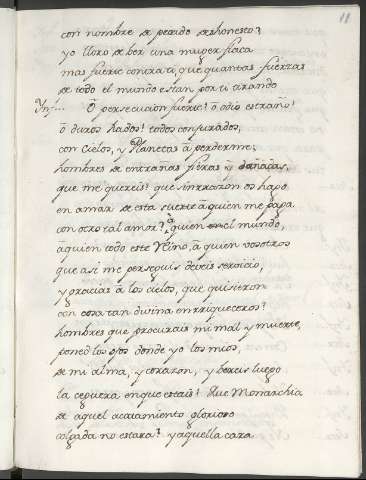 11
con nombre de pecado deshonesto?
yo lloro de ber una muger flaca
mas fuerte contra ti, que quantas fuerzas
de todo el mundo estan por ti tirando
Ynf... O persecucion fuerte! ô odio estraño!
ô duros hados! todos conjurados,
con Cielos, y Planetas à perderme;
hombres de entrañas fieras y dañadas,
que me quereis? que sinrrazon os hago
en amar de esta suerte à quien me paga
con otro tal amor? à quien en el mundo,
à quien todo este Reino, à quien vosotros
que asi me perseguis debeis servicio,
y gracias à los cielos, que quisieron
con cosa tan divina enrriqueceros?
hombres que procurais mi mal y muerte,
poned los ojos donde yo los mios,
de mi alma, y corazon, y bereis luego
la ceguera en que estais! Que Monarchia
de aquel acatamiento glorioso
colgada no estara? y aquella cara